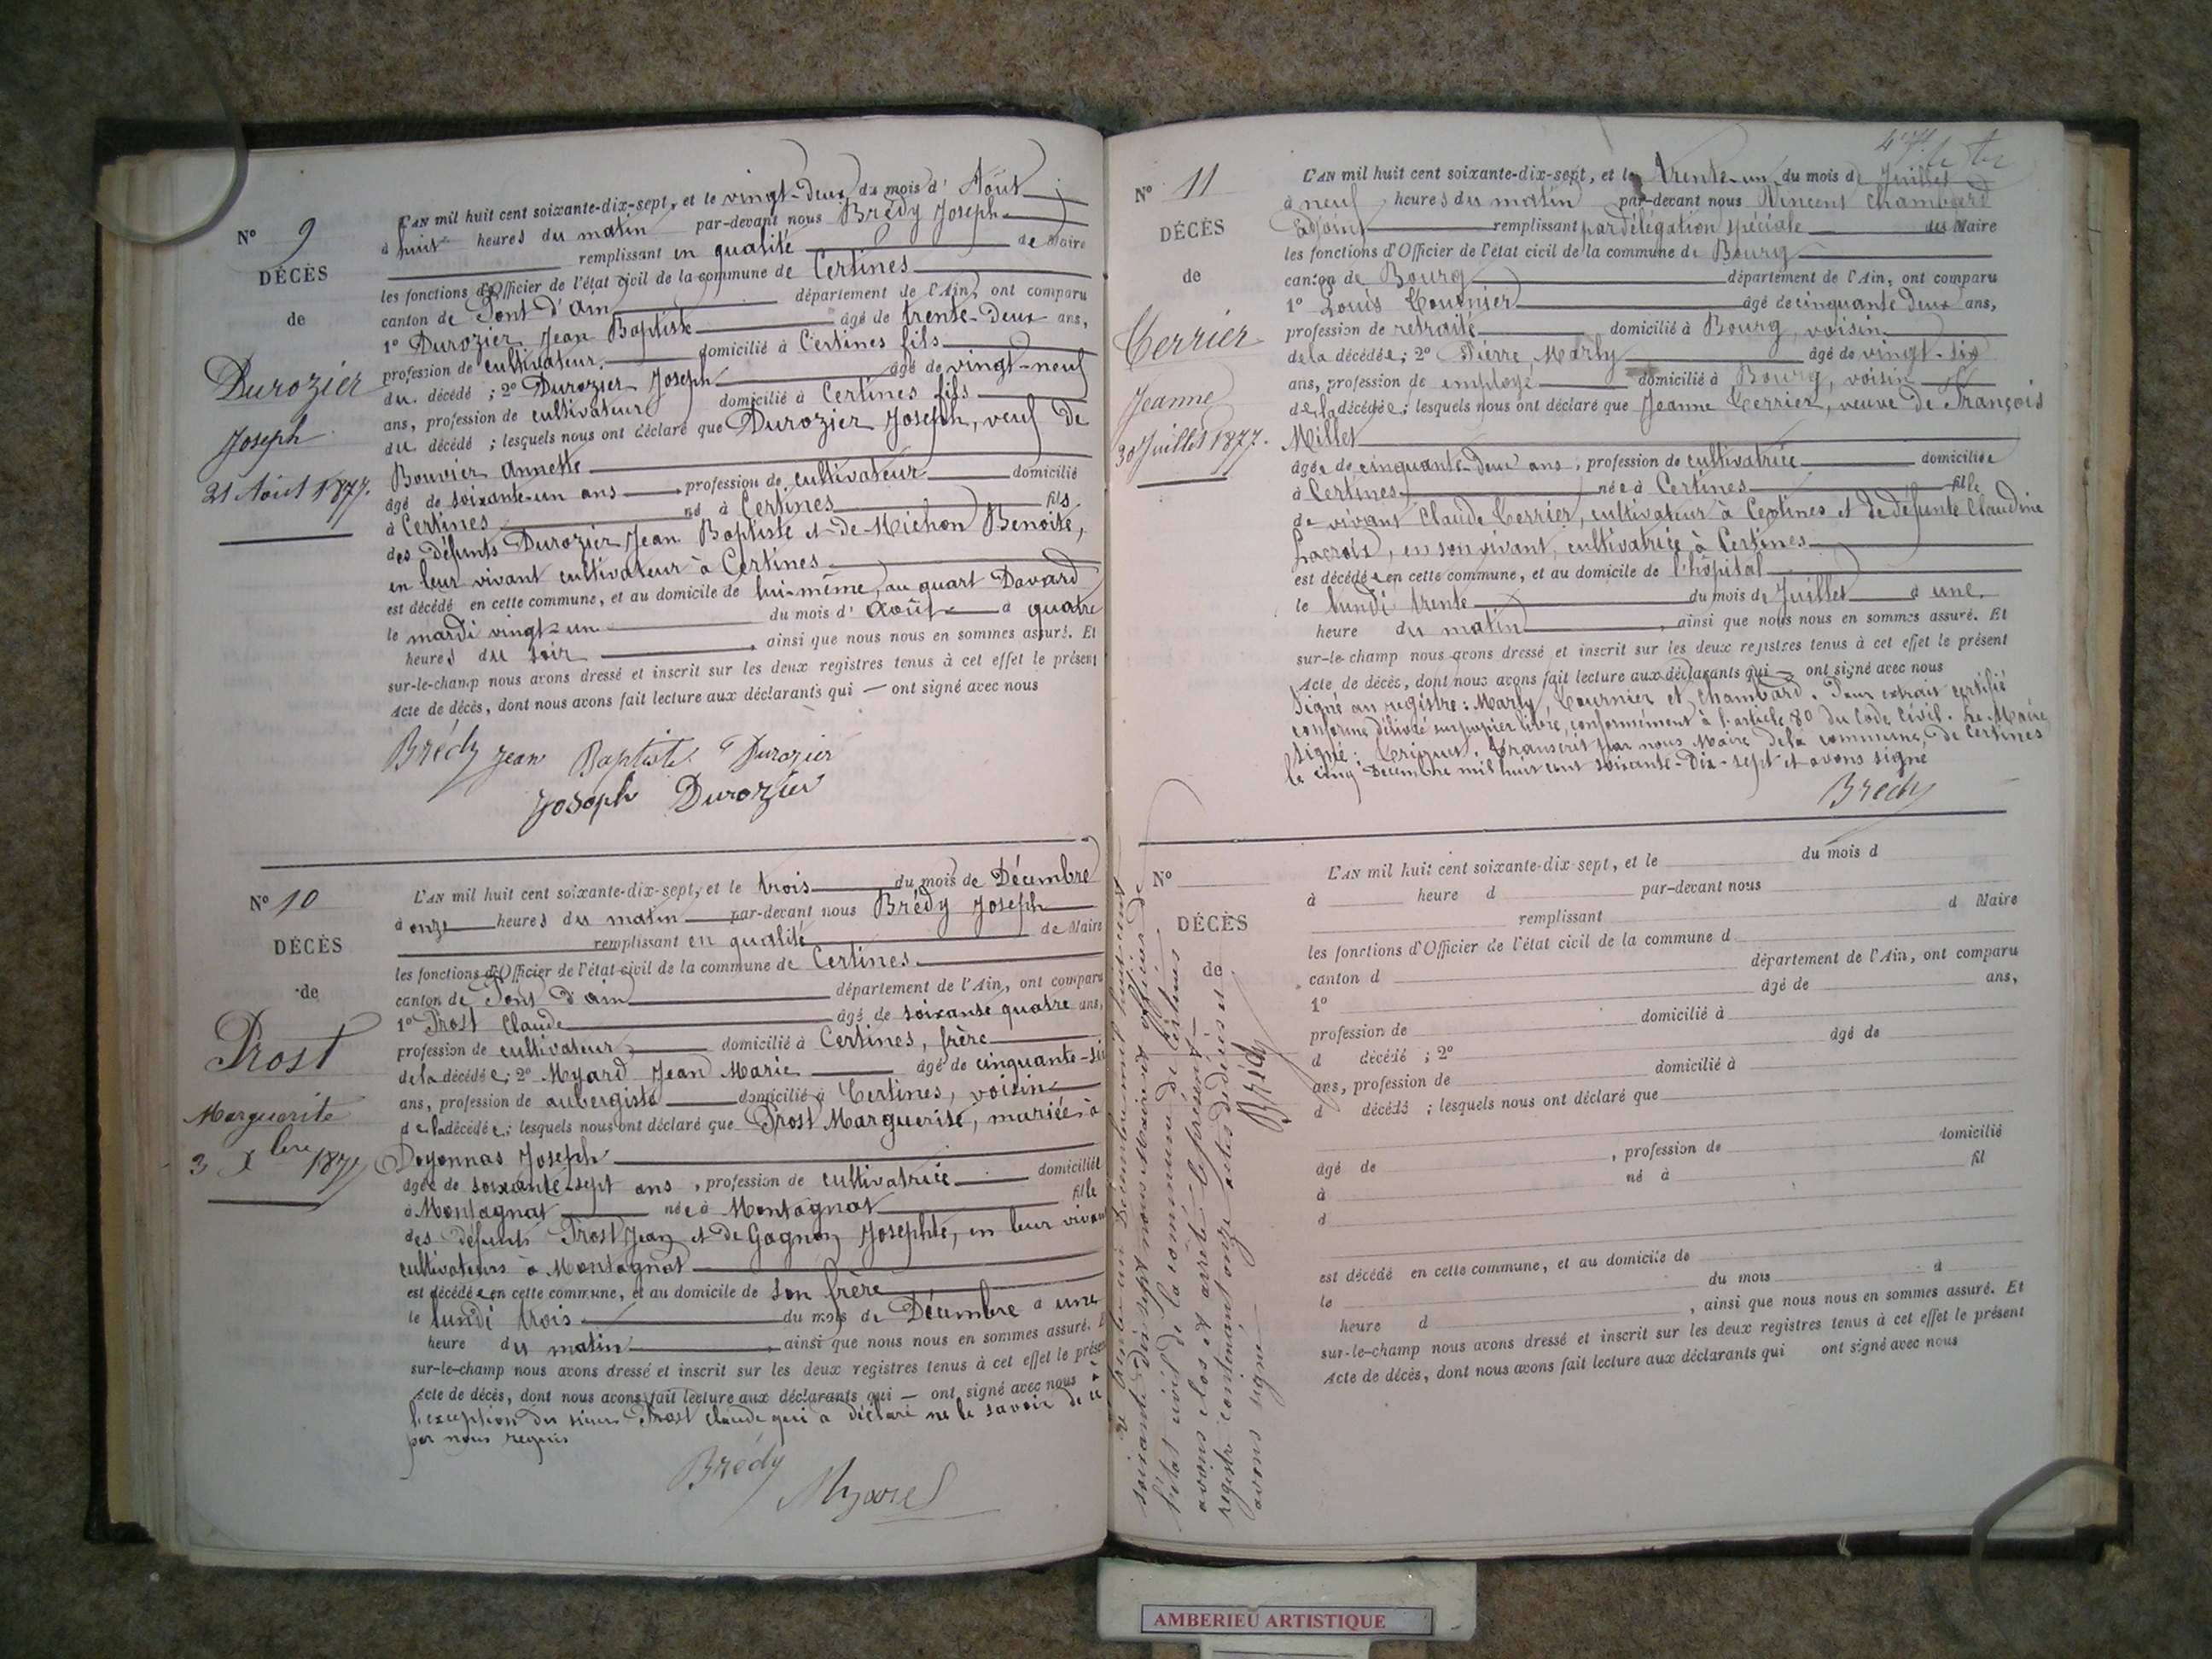 N° 9
DÉCÈS
de
Durozier
Joseph
21 Août 1877.
L'AN mil huit cent soixante-dix-sept, et le vingt-deux du mois d' Août
à huit heures du matin par-devant nous Brédy Joseph
remplissant en qualité de Maire
les fonctions d'Officier de l'état civil de la commune de Certines
canton de Pont d'Ain département de l'Ain, ont comparu
1° Durozier Jean Baptiste âgé de trente-deux ans,
profession de cultivateur, domicilié à Certines fils
du décédé ; 2° Durozier Joseph âgé de vingt-neuf
ans, profession de cultivateur domicilié à Certines fils
du décédé ; lesquels nous ont déclaré que Durozier Joseph, veuf de
Bouvier Annette
âgé de soixante-un ans, profession de cultivateur domicilié
à Certines né à Certines fils
des défunts Durozier Jean Baptiste et de Michon Benoite,
en leur vivant cultivateur à Certines
est décédé en cette commune, et au domicile de lui-même, au quart Davard
le mardi vingt-un du mois d' Août à quatre
heures du soir, ainsi que nous nous en sommes assuré. Et
sur-le-champ nous avons dressé et inscrit sur les deux registres tenus à cet effet le présent
Acte de décès, dont nous avons fait lecture aux déclarants qui — ont signé avec nous
Brédy Jean Baptiste Durozier
Joseph Durozier
N° 10
DÉCÈS
de
Prost
Marguerite
3 Xbre 1877
L'AN mil huit cent soixante-dix-sept, et le trois du mois de Décembre
à onze heures du matin par-devant nous Brédy Joseph
remplissant en qualité de Maire
les fonctions d'Officier de l'état civil de la commune de Certines
canton de Pont d'ain département de l'Ain, ont comparu
1° Prost Claude âgé de soixante quatre ans,
profession de cultivateur domicilié à Certines, frère
de la décédée ; 2° Myard Jean Marie âgé de cinquante-six
ans, profession de aubergiste domicilié à Certines, voisin
de la décédée ; lesquels nous ont déclaré que Prost Marguerite, mariée à
Doyonnas Joseph
âgée de soixante-sept ans, profession de cultivatrice domiciliée
à Montagnat née à Montagnat fille
des défunts Prost Jean et de Gagnon Josephte, en leur vivant
cultivateurs à Montagnat
est décédée en cette commune, et au domicile de son frère
le lundi trois du mois de Décembre à une
heure du matin, ainsi que nous nous en sommes assuré. Et
sur-le-champ nous avons dressé et inscrit sur les deux registres tenus à cet effet le présent
Acte de décès, dont nous avons fait lecture aux déclarants qui — ont signé avec nous à
l'exception du sieur Prost Claude qui a déclaré ne le savoir de ce
par nous requis
Brédy
Myard
N° 11
DÉCÈS
de
Terrier
Jeanne
30 Juillet 1877.
L'AN mil huit cent soixante-dix-sept, et le trente-un du mois de Juillet
à neuf heures du matin par-devant nous Vincent Chambard
Adjoint remplissant par délégation spéciale des Maire
les fonctions d'Officier de l'état civil de la commune de Bourg
canton de Bourg département de l'Ain, ont comparu
1° Louis Tournier âgé de cinquante deux ans,
profession de retraité domicilié à Bourg, voisin
de la décédée ; 2° Pierre Marly âgé de vingt-six
ans, profession de employé domicilié à Bourg, voisin
de la décédée ; lesquels nous ont déclaré que Jeanne Terrier, veuve de François
Millet
âgée de cinquante-deux ans, profession de cultivatrice domiciliée
à Certines née à Certines fille
de vivant Claude Terrier, cultivateur à Certines et de défunte Claudine
Lacroix, en son vivant, cultivatrice à Certines
est décédée en cette commune, et au domicile de l'hôpital
le lundi trente du mois de Juillet à une
heure du matin, ainsi que nous nous en sommes assuré. Et
sur-le-champ nous avons dressé et inscrit sur les deux registres tenus à cet effet le présent
Acte de décès, dont nous avons fait lecture aux déclarants qui — ont signé avec nous
Signé au registre : Marly, Tournier et Chambard. Pour extrait certifié
conforme délivré sur papier libre, conformément à l'article 80 du Code Civil. Le Maire
signé : . Transcrit par nous Maire de la commune de Certines
le cinq Décembre mil huit cent soixante-dix-sept et avons signé
Brédy
N°
DÉCÈS
de
L'AN mil huit cent soixante-dix-sept, et le du mois d
à heure d par-devant nous
remplissant d Maire
les fonctions d'Officier de l'état civil de la commune d
canton d département de l'Ain, ont comparu
1° âgé de ans,
profession de domicilié à
d décédé ; 2° âgé de
ans, profession de domicilié à
d décédé ; lesquels nous ont déclaré que
âgé de , profession de domicilié
à né à fil
d
est décédé en cette commune, et au domicile de
le du mois à
heure d , ainsi que nous nous en sommes assuré. Et
sur-le-champ nous avons dressé et inscrit sur les deux registres tenus à cet effet le présent
Acte de décès, dont nous avons fait lecture aux déclarants qui ont signé avec nous
Le trente-un Décembre mil huit cent
soixante-dix-sept nous Maire et officier de
l'état civil de la commune de Certines
avons clos et arrêté le présent
registre contenant onze actes de décès et
avons signé
Brédy
AMBERIEU ARTISTIQUE